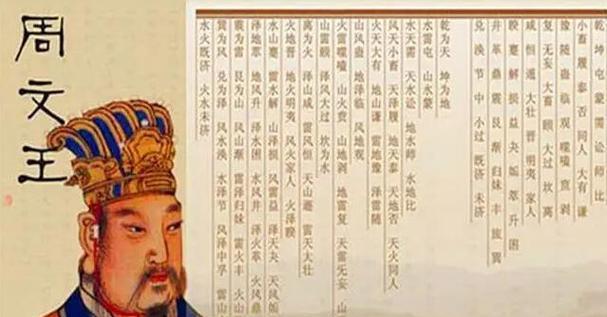 周文王
乾 坤 屯 蒙 需 讼 师 比
小畜 履 泰 否 同人 大有 谦
豫 随 蛊 临 观 噬嗑 贲 剥
复 无妄 大畜 颐 大过 坎 离
咸 恒 遁 大壮 晋 明夷 家人
睽 蹇 解 损 益 夬 姤 萃 升 困
井 革 鼎 震 艮 渐 归妹 丰 旅 巽
兑 涣 节 中 小过 既济 未济
乾为天 坤为地
水雷屯 山水蒙
水天需 天水讼 地水师 水地比
风天小畜 天泽履 地天泰 天地否 天火同人
火天大有 地山谦 雷地豫 泽雷随
山风蛊 地泽临 风地观
火雷噬嗑 山火贲 山地剥 地雷复 天雷无妄 山
山雷颐 泽风大过 坎为水
离为火 泽山咸 雷风恒 天山遁 雷天大壮
火地晋 地火明夷 风火家人 火泽睽
水山蹇 雷水解 山泽损 风雷益 泽天夬 天风姤
泽地萃 地风升 泽水困 水风井 泽火革 火风鼎
震为雷 艮为山 风山渐 雷泽归妹 雷火丰 火山
巽为风 兑为泽 风水涣 水泽节 风泽中孚 雷山
水火既济 火水未济